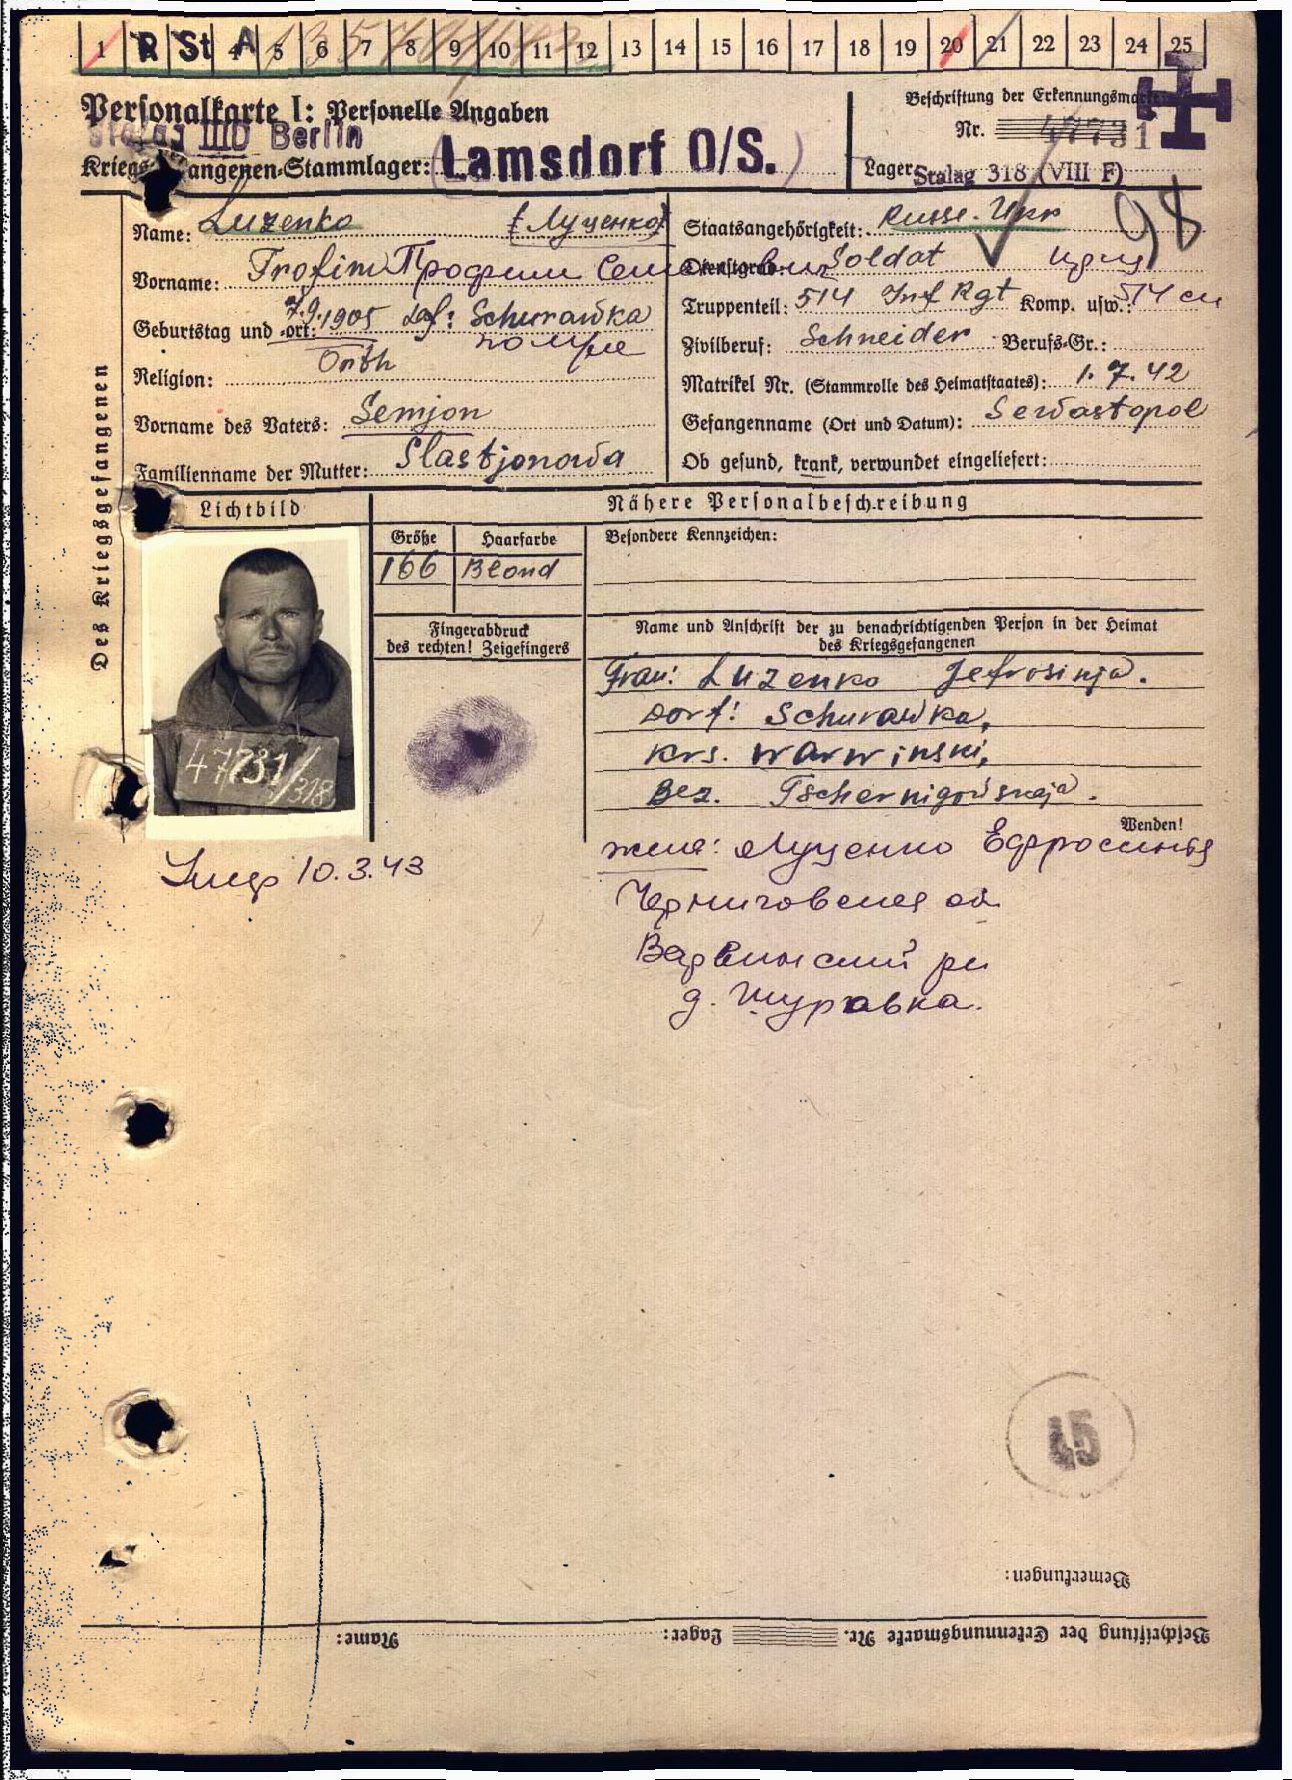 1 R St 4 A 5 6 7 8 9 10 11 12 13 14 15 16 17 18 19 20 21 22 23 24 25
Personalkarte I: Personelle Angaben
Stalag IIID Berlin
Kriegsgefangenen-Stammlager: (Lamsdorf O/S.)
Beschriftung der Erkennungsmarke
Nr. 47731
Lager: Stalag 318 (VIII F)
98
Des Kriegsgefangenen
Name: Luzenko (Луценко)
Vorname: Trofim Трофим Семенович
Geburtstag und -ort: 7.9.1905 Schurawka
Religion: Orth
Vorname des Vaters: Semjon
Familienname der Mutter: Slastjonowa
Staatsangehörigkeit: Russe. Ukr
Dienstgrad: Soldat
Truppenteil: 514 Inf Rgt Komp. usw.: 514
Zivilberuf: Schneider Berufs-Gr.:
Matrikel Nr. (Stammrolle des Heimatstaates): 1.7.42
Gefangenname (Ort und Datum): Sewastopol
Ob gesund, krank, verwundet eingeliefert:
Lichtbild
Nähere Personalbeschreibung
Größe Haarfarbe Besondere Kennzeichen:
166 Blond
Fingerabdruck
des rechten! Zeigefingers
Name und Anschrift der zu benachrichtigenden Person in der Heimat
des Kriegsgefangenen
Frau: Luzenko Jefrosinja.
Dorf: Schurawka,
Krs. Warwinski,
Bez. Tschernigowskaja.
47731/318
Wenden!
жена: Луценко Ефросинья
Черниговская об
Варвинский рн
д. Журавка.
Умер 10.3.43
45
Bemerkungen:
Beschriftung der Erkennungsmarke Nr. Lager: Name: